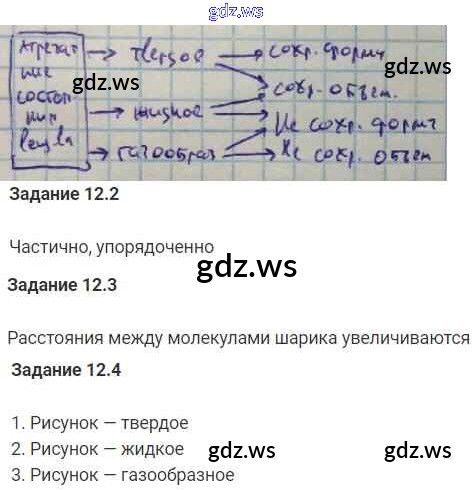 gdz.ws
Агрегат → твердое → сохр. форму
ные gdz.ws gdz.ws
состоя → сохр. объем.
ния → жидкое → Не сохр. форму
вещ-ва → газообраз → Не сохр. объем
Задание 12.2
Частично, упорядоченно
gdz.ws
Задание 12.3
Расстояния между молекулами шарика увеличиваются
Задание 12.4
1. Рисунок — твердое
2. Рисунок — жидкое
gdz.ws gdz.ws
3. Рисунок — газообразное